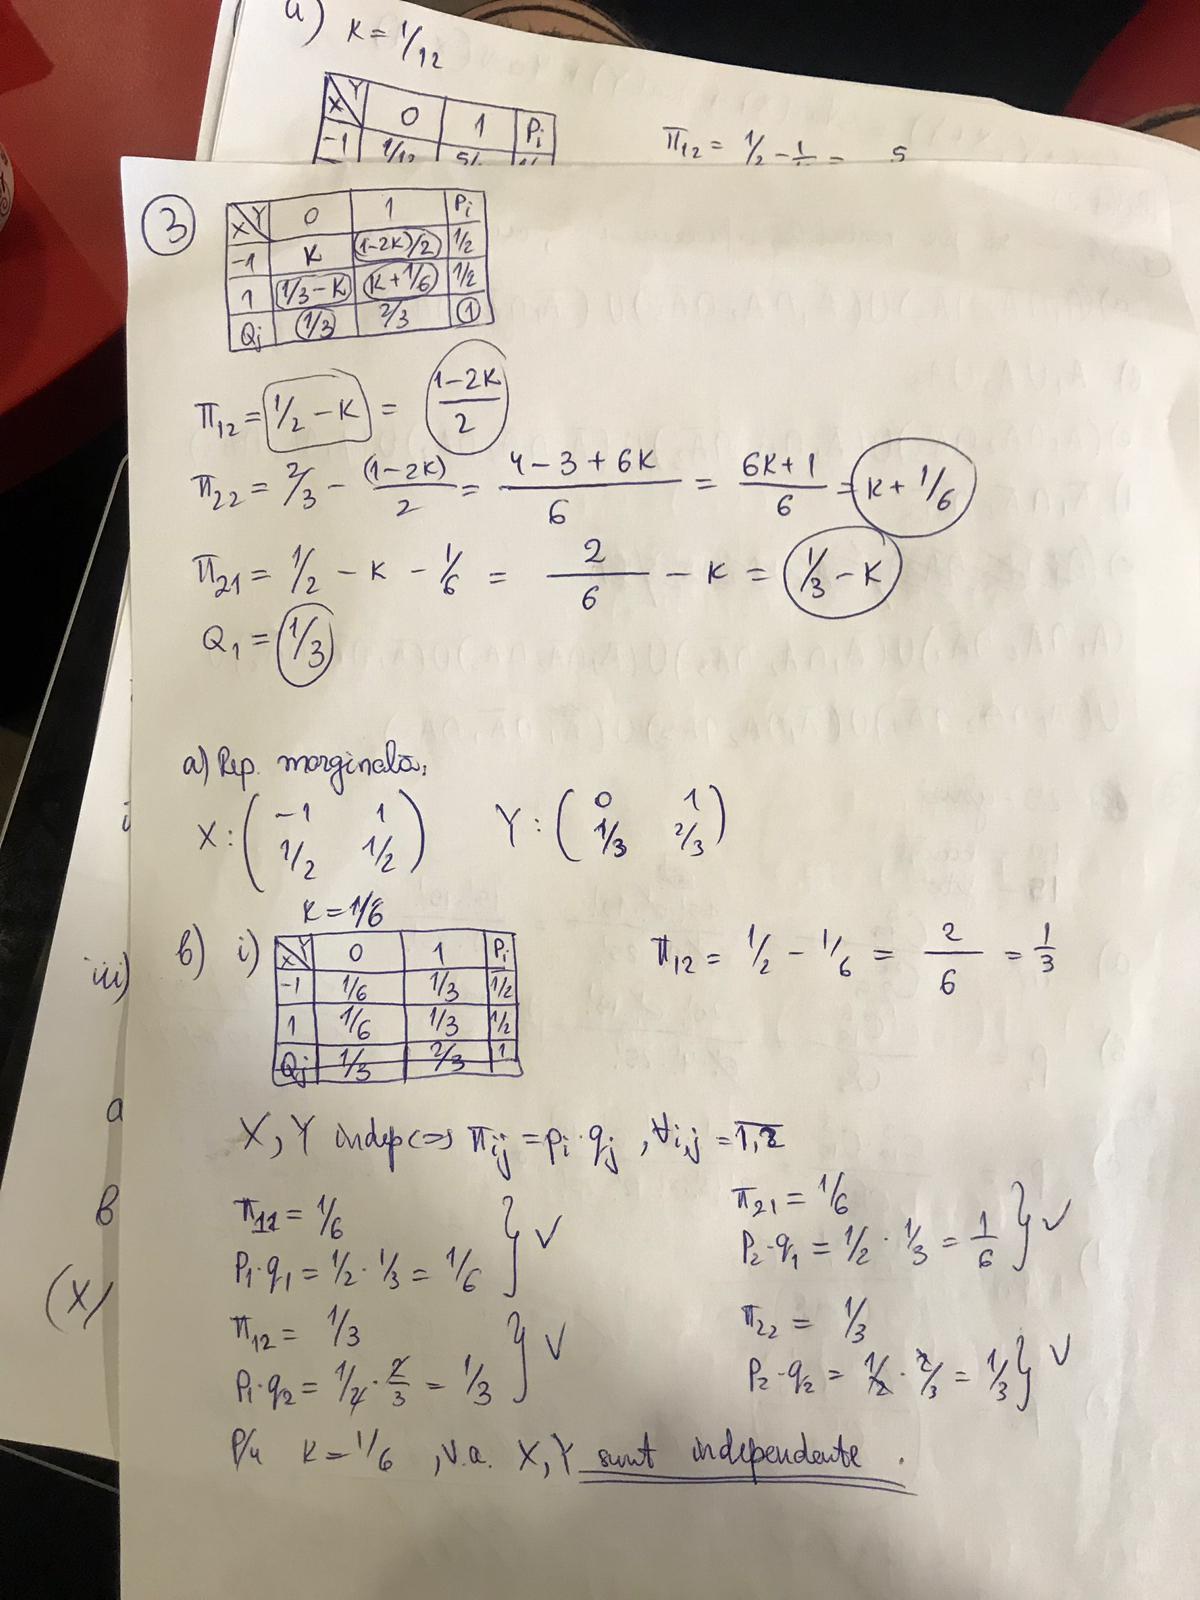 a) K = 1/12
X Y 0 1 Pi
-1 1/12 5/
π12 = 1/2 - 1/ = 5
3
X Y 0 1 Pi
-1 K (1-2K)/2 1/2
1 1/3-K K+1/6 1/2
Qj 1/3 2/3 1
π12 = 1/2 - K = (1-2K)/2
π22 = 2/3 - (1-2K)/2 = (4-3+6K)/6 = (6K+1)/6 = K + 1/6
π21 = 1/2 - K - 1/6 = 2/6 - K = 1/3 - K
Q1 = 1/3
a) Rep. marginală,
X: (-1 1
1/2 1/2)
Y: (0 1
1/3 2/3)
K = 1/6
b) i)
X Y 0 1 Pi
-1 1/6 1/3 1/2
1 1/6 1/3 1/2
Qj 1/3 2/3 1
π12 = 1/2 - 1/6 = 2/6 = 1/3
iii)
X, Y indep <=> πij = pi · qj, ∀i,j = 1,2
a
π11 = 1/6
P1·q1 = 1/2 · 1/3 = 1/6 } V
π21 = 1/6
P2·q1 = 1/2 · 1/3 = 1/6 } V
b
(X/
π12 = 1/3
P1·q2 = 1/2 · 2/3 = 1/3 } V
π22 = 1/3
P2·q2 = 1/2 · 2/3 = 1/3 } V
P/u K = 1/6, v.a. X, Y sunt independente.